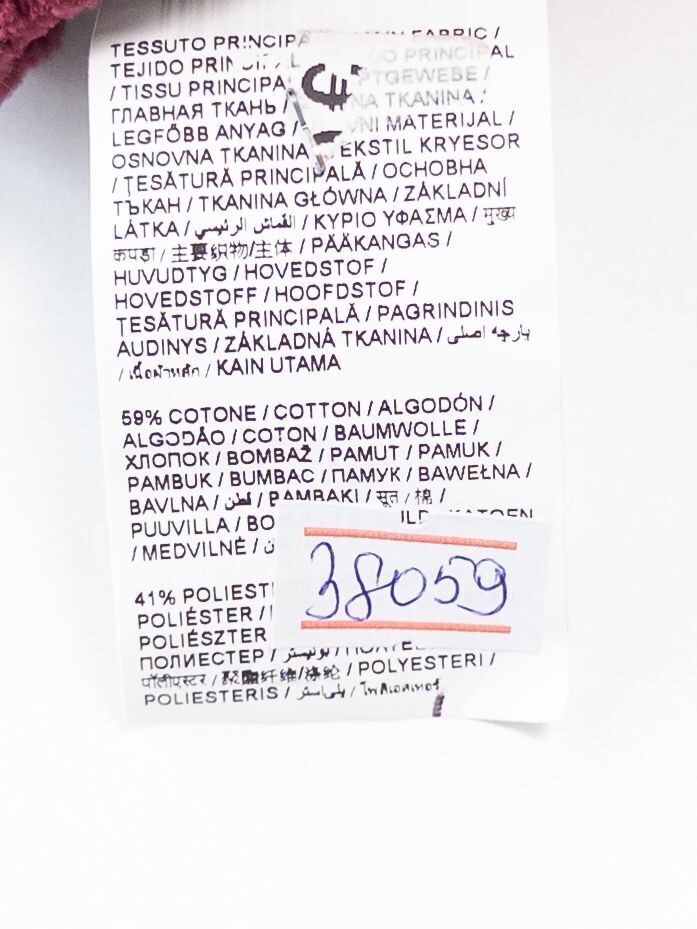 TESSUTO PRINCIPA FABRIC /
TEJIDO PRIN PRINCIPAL
/ TISSU PRINCIPA PTGEWEBE /
ГЛАВНАЯ ТКАНЬ / NA TKANINA /
LEGFŐBB ANYAG / VNI MATERIJAL /
OSNOVNA TKANINA EKSTIL KRYESOR
/ ȚESĂTURĂ PRINCIPALĂ / ОСНОВНА
ТЪКАН / TKANINA GŁÓWNA / ZÁKLADNÍ
LÁTKA / القماش الرئيسي / ΚΥΡΙΟ ΥΦΑΣΜΑ / मुख्य
कपड़ा / 主要织物/主体 / PÄÄKANGAS /
HUVUDTYG / HOVEDSTOF /
HOVEDSTOFF / HOOFDSTOF /
TESĂTURĂ PRINCIPALĂ / PAGRINDINIS
AUDINYS / ZÁKLADNÁ TKANINA / پارچه اصلی
/ เนื้อผ้าหลัก / KAIN UTAMA
59% COTONE / COTTON / ALGODÓN /
ALGODÃO / COTON / BAUMWOLLE /
ХЛОПОК / BOMBAŽ / PAMUT / PAMUK /
PAMBUK / BUMBAC / ПАМУК / BAWEŁNA /
BAVLNA / قطن / BAMBAKI / सूत / 棉 /
PUUVILLA / BO KATOEN
/ MEDVILNĖ /
38059
41% POLIEST
POLIÉSTER /
POLIÉSZTER
ПОЛИЕСТЕР / بوليستر /
पॉलीएस्टर / 聚酯纤维/涤纶 / POLYESTERI /
POLIESTERIS / پلی‌استر / โพลีเอสเตอร์